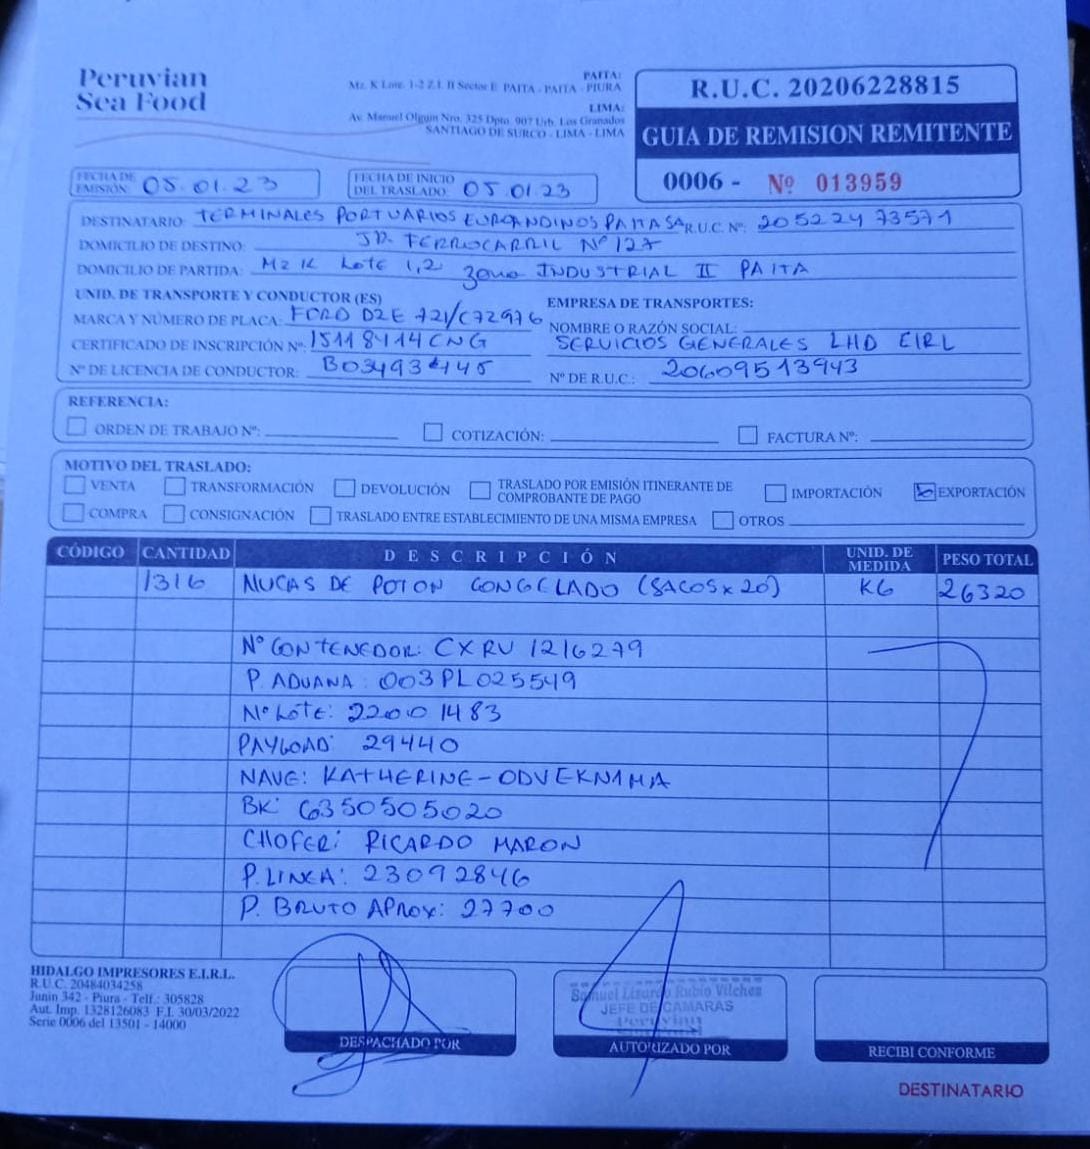 Peruvian
Sea Food
PAITA:
Mz. K Lote. 1-2 Z.I. II Sector E PAITA - PAITA - PIURA
LIMA:
Av. Manuel Olguin Nro. 325 Dpto. 907 Urb. Los Granados
SANTIAGO DE SURCO - LIMA - LIMA
R.U.C. 20206228815
GUIA DE REMISION REMITENTE
0006 - Nº 013959
FECHA DE EMISIÓN: 05.01.23
FECHA DE INICIO DEL TRASLADO: 05.01.23
DESTINATARIO: TERMINALES PORTUARIOS EUROANDINOS PAITA SA R.U.C. Nº: 20522473571
DOMICILIO DE DESTINO: JR. FERROCARRIL Nº 127
DOMICILIO DE PARTIDA: Mz K Lote 1,2 zona INDUSTRIAL II PAITA
UNID. DE TRANSPORTE Y CONDUCTOR (ES)
MARCA Y NÚMERO DE PLACA: FORD D2E 721/C72976
CERTIFICADO DE INSCRIPCIÓN Nº: 15118414CNG
Nº DE LICENCIA DE CONDUCTOR: B03493445
EMPRESA DE TRANSPORTES:
NOMBRE O RAZÓN SOCIAL:
SERVICIOS GENERALES LHD EIRL
Nº DE R.U.C.: 20609513943
REFERENCIA:
ORDEN DE TRABAJO Nº: COTIZACIÓN: FACTURA Nº:
MOTIVO DEL TRASLADO:
VENTA TRANSFORMACIÓN DEVOLUCIÓN TRASLADO POR EMISIÓN ITINERANTE DE COMPROBANTE DE PAGO IMPORTACIÓN EXPORTACIÓN
COMPRA CONSIGNACIÓN TRASLADO ENTRE ESTABLECIMIENTO DE UNA MISMA EMPRESA OTROS
CÓDIGO CANTIDAD DESCRIPCIÓN UNID. DE MEDIDA PESO TOTAL
1316 NUCAS DE POTON CONGELADO (SACOS x 20) KG 26320
Nº CONTENEDOR: CXRU 1216279
P. ADUANA: 003PL025549
Nº Lote: 22001483
PAYLOAD: 29440
NAVE: KATHERINE - ODVEKNIMA
BK: 6350505020
CHOFER: RICARDO MARON
P. LINEA: 23092846
P. BRUTO APROX: 27700
HIDALGO IMPRESORES E.I.R.L.
R.U.C. 20484034258
Junin 342 - Piura - Telf.: 305828
Aut. Imp. 1328126083 F.I. 30/03/2022
Serie 0006 del 13501 - 14000
DESPACHADO POR
Samuel Lizardo Rubio Vilchez
JEFE DE CAMARAS
Peruvian
AUTORIZADO POR
RECIBI CONFORME
DESTINATARIO